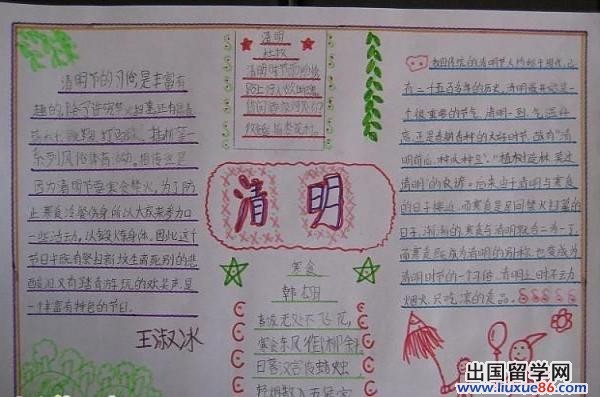 清明节的习俗是丰富有
趣的,除了讲究禁火、扫墓,还有踏青
荡秋千、蹴鞠、打马球、插柳等一
系列风俗体育活动。相传这是
因为清明节要寒食禁火,为了防
止寒食冷餐伤身,所以大家来参加
一些活动,以锻炼身体。因此,这个
节日中既有祭扫新坟生离死别的悲
酸泪,又有踏青游玩的欢笑声,是
一个富有特色的节日。
王淑冰
清明
杜牧
清明时节雨纷纷
路上行人欲断魂
借问酒家何处有
牧童遥指杏花村
清明
寒食
韩翃
春城无处不飞花,
寒食东风御柳斜
日暮汉宫传蜡烛
轻烟散入五侯家
我国传统的清明节大约始于周代,已
有二千五百多年的历史。清明最开始是一
个很重要的节气,清明一到,气温升
高,正是春耕春种的大好时节,故有“清
明前后,种瓜种豆”。“植树造林,莫过
清明”的农谚。后来,由于清明与寒食
的日子接近,而寒食是民间禁火扫墓的
日子,渐渐的,寒食与清明就合二为一了,
而寒食既成为清明的别称,也变成为
清明时节的一个习俗,清明之时不动
烟火,只吃凉的食品。
出国留学网
www.liuxue86.com